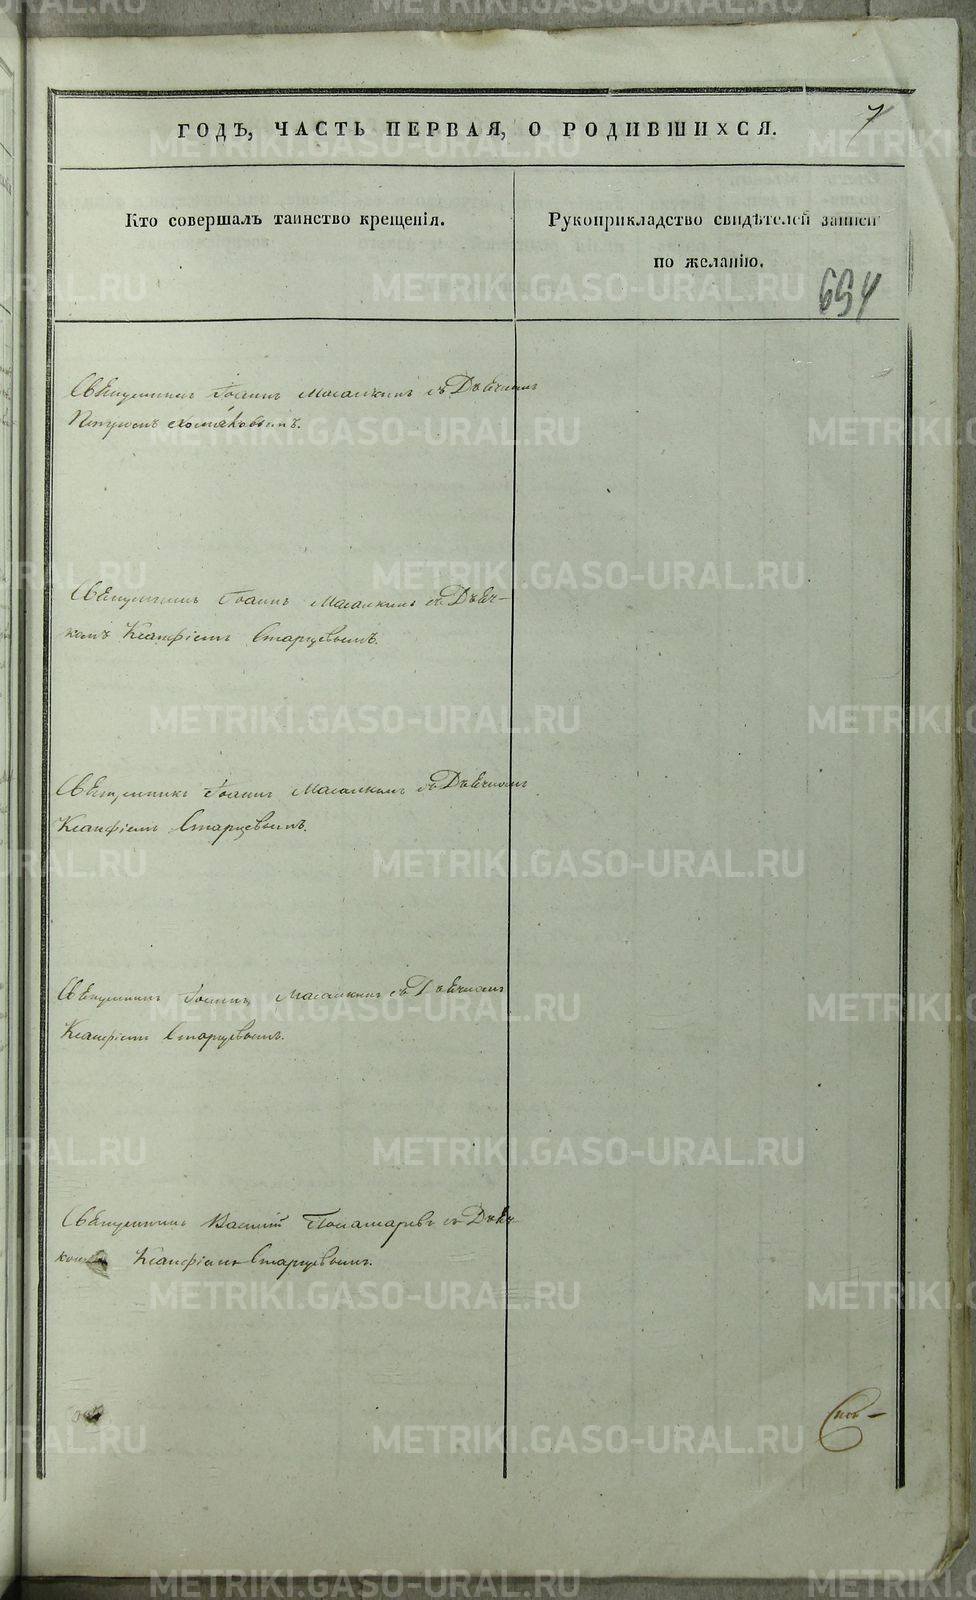 7
ГОДЪ, ЧАСТЬ ПЕРВАЯ, О РОДИВШИХСЯ.
Кто совершалъ таинство крещенія.
Рукоприкладство свидѣтелей записи
по желанію.
694
Священникъ Іоаннъ съ Дьячкомъ
Петромъ Хомяковымъ.
Священникъ Іоаннъ съ Дьяч-
комъ Ксанфіемъ Старцевымъ.
Священникъ Іоаннъ съ Дьячкомъ
Ксанфіемъ Старцевымъ.
Священникъ Іоаннъ съ Дьячкомъ
Ксанфіемъ Старцевымъ.
Священникъ Василій Пономаревъ съ Дьяч-
комъ Ксанфіемъ Старцевымъ.
METRIKI.GASO-URAL.RU